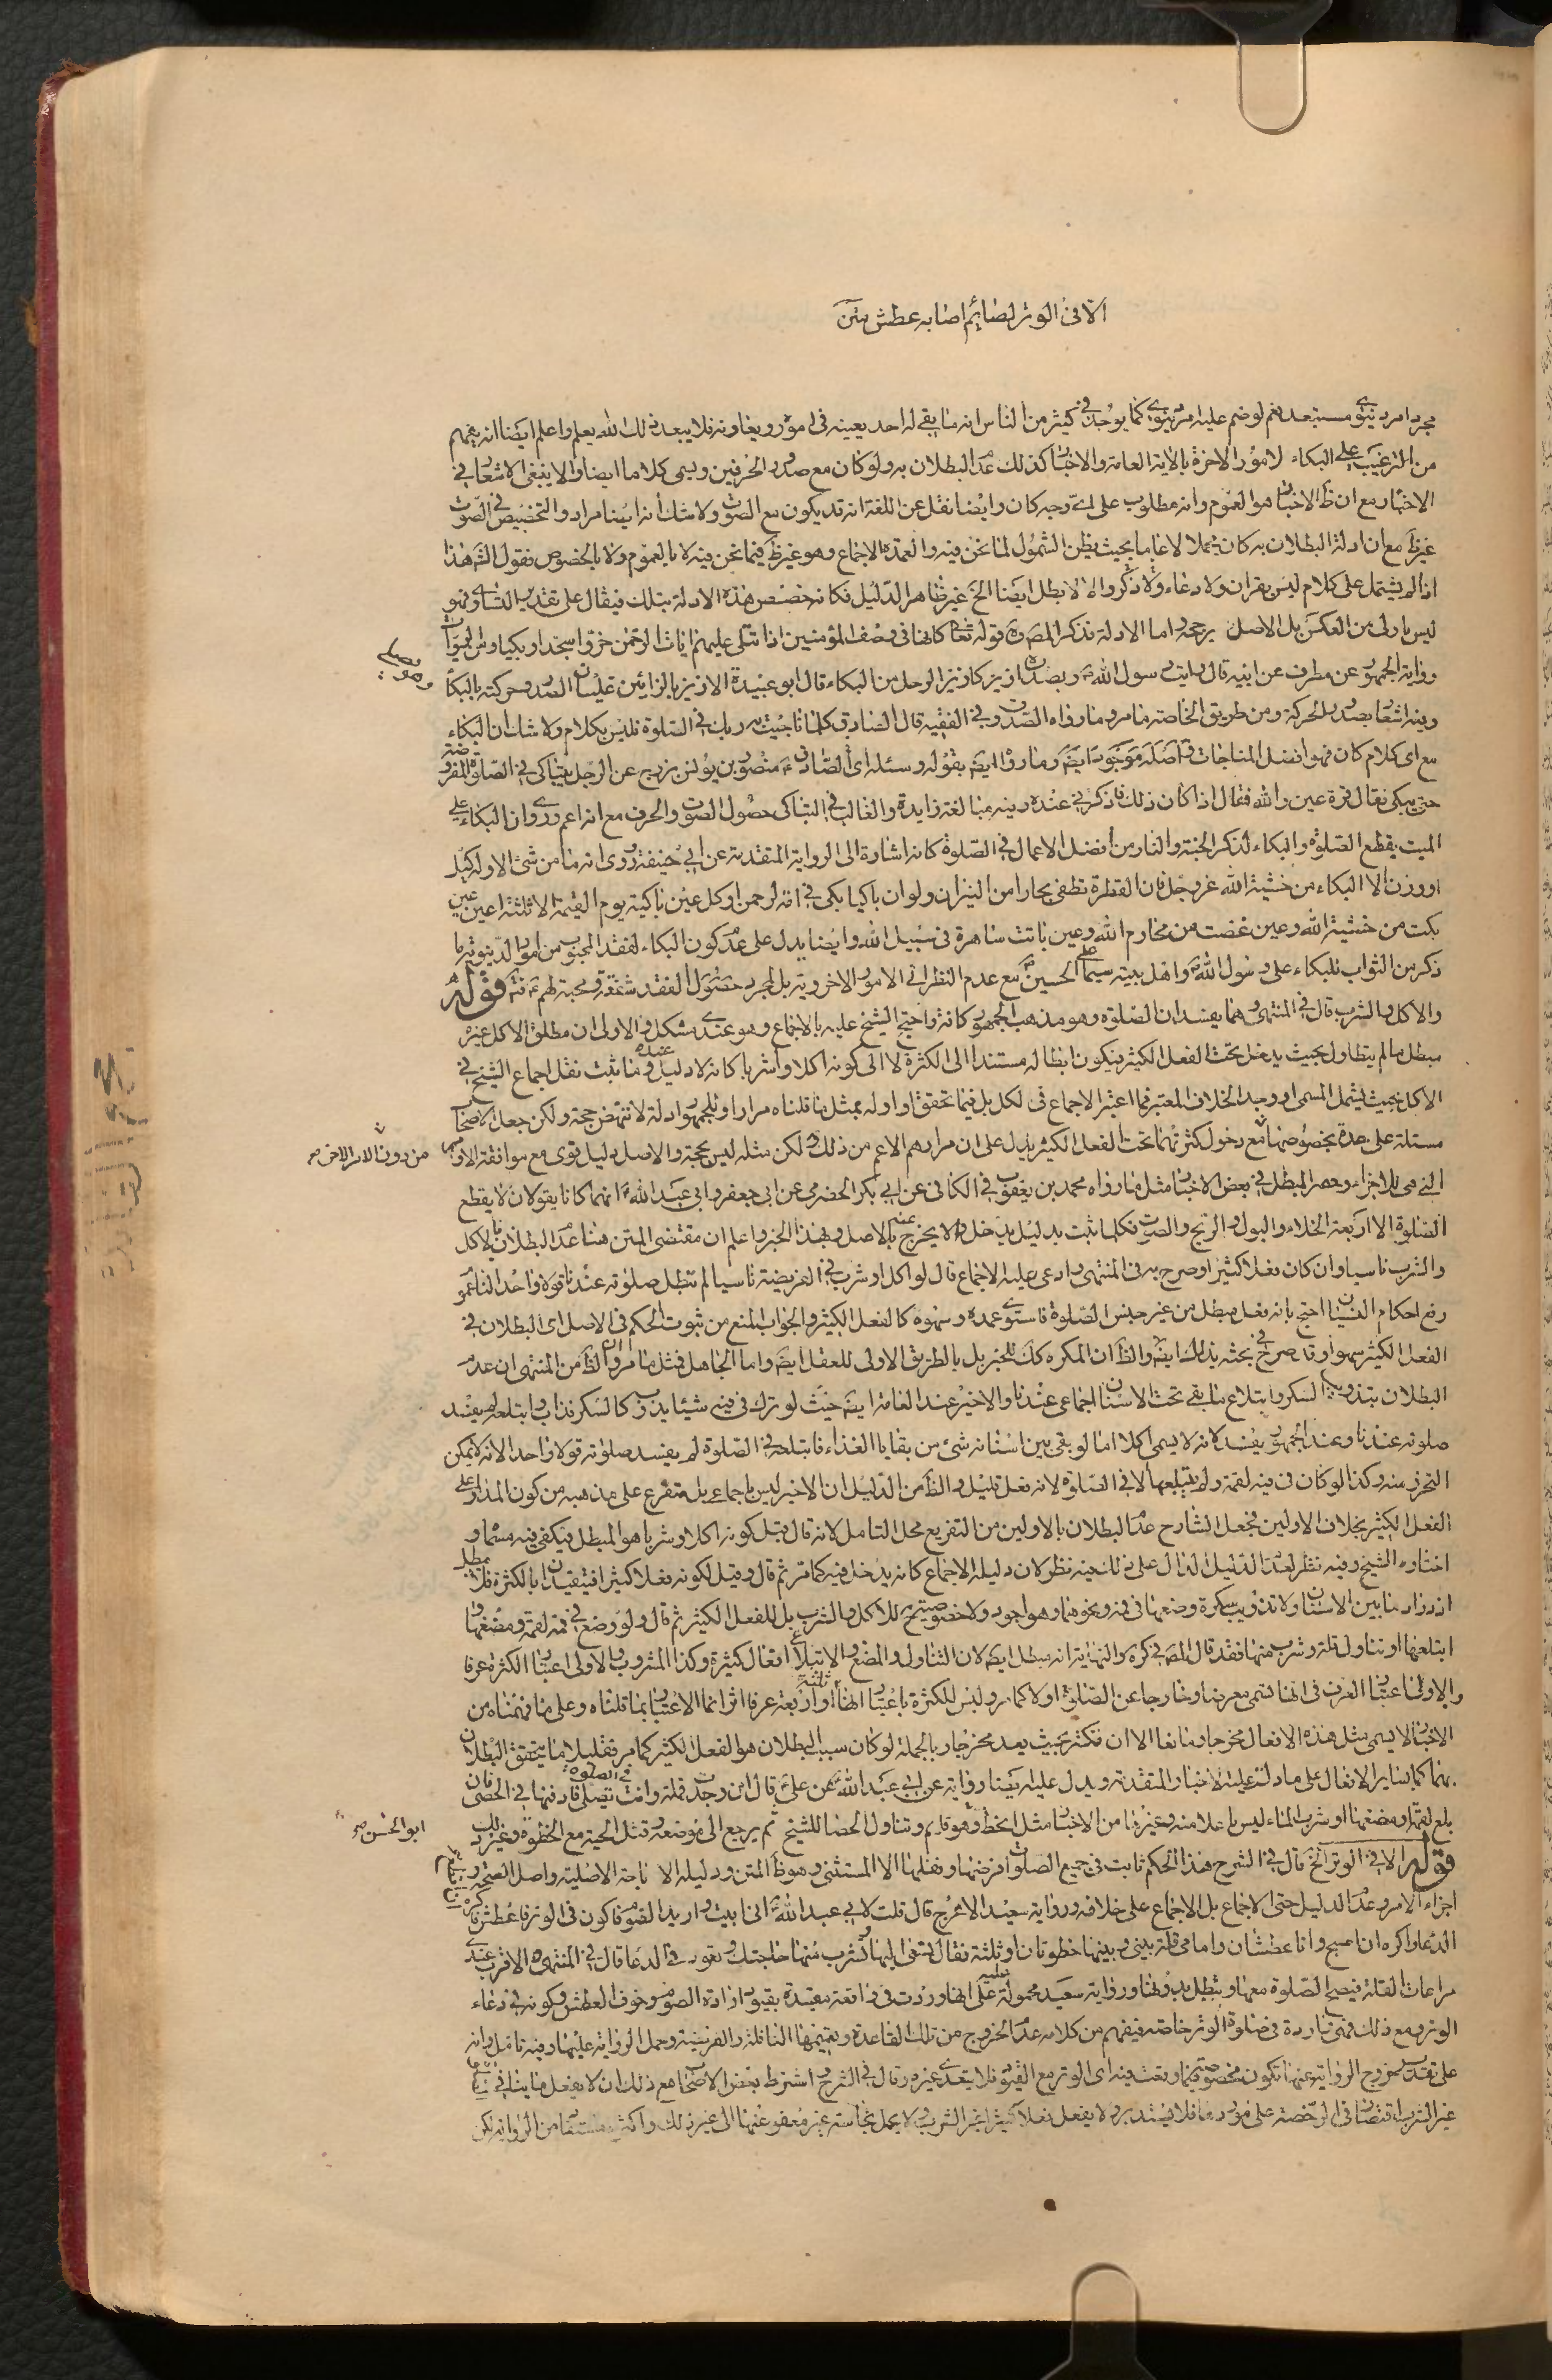 الا فى الوتر لصائم اصابه عطش متن
مجرد امر دنيوى مستبعد نعم لو ضم عليه امر دنيوى كما يوجد فى كثير من الناس انه ما بقى له احد يعينه فى اموره ويعاونه فلا يبعد ذلك الله يعلم واعلم ايضا انه يفهم
من الترغيب على البكاء لامور الاخرة بالاية العامة والاخبار كذلك عدم البطلان به ولو كان مع صدور الحرفين ويسمى كلاما ايضا والا ينبغى الاشعار فى
الاخبار مع ان ظ الاخبار هو العموم وانه مطلوب على اى وجه كان وايضا نقل عن اللغة انه قد يكون مع الصوت ولا شك انه ايضا مراد والتخصيص فى الصوت
غير ظ مع ان ادلة البطلان به كان مجملا لا عاما بحيث يظن الشمول لما نحن فيه والعمدة الاجماع وهو غير ظ فيما نحن فيه لا بالعموم ولا بالخصوص فقول الش هذا
اذا لم يشتمل على كلام ليس بقران ولا دعاء ولا ذكر والا لابطل ايضا الخ غير ظاهر الدليل فكانه خصص هذه الادلة بتلك فيقال على تقدير التساوى فهو
ليس باولى من العكس بل الاصل يرجحه واما الادلة فذكر المص ره قوله تعا كانها فى وصف المؤمنين اذا تتلى عليهم ايات الرحمن خروا سجدا وبكيا ومن الجمهور
رواية الجمهور عن مطرف عن ابيه قال رايت رسول الله ص وبصدره ازيز كازيز الرجل من البكاء قال ابو عبيدة الازيز بالزائين غليان الصدر وحركته بالبكاء
وفيه اشعار بصدور الحركة ومن طريق الخاصة ما مر وما رواه الصدوق فى الفقيه قال الصادق كلما ناجيت به ربك فى الصلوة فليس بكلام ولا شك ان البكاء
مع اى كلام كان فهو افضل المناجات واصله موجود ايضا وما رواه ايضا بقوله وسئله اى الصادق ع منصور بن يونس بزرج عن الرجل يتباكى فى الصلوة المفروضة
حتى يبكى فقال قرة عين والله فقال اذا كان ذلك فاذكرنى عنده وفيه مبالغة زايدة والغالب فى التباكى حصول الصوت والحرف مع انه اعم وروى ان البكاء على
الميت يقطع الصلوة والبكاء لذكر الجنة والنار من افضل الاعمال فى الصلوة كانه اشارة الى الرواية المتقدمة عن ابى حنيفة وروى انه ما من شئ الا وله كيل
او وزن الا البكاء من خشية الله عز وجل فان القطرة تطفى بحارا من النيران ولو ان باكيا بكى فى امة لرحموا وكل عين باكية يوم القيمة الا ثلثة اعين عين
بكت من خشية الله وعين غضت من محارم الله وعين باتت ساهرة فى سبيل الله وايضا يدل على عدم كون البكاء لفقد المحبوب من امور الدنيوية ما
ذكر من الثواب للبكاء على رسول الله ص واهل بيته سيما على الحسين ع مع عدم النظر الى الامور الاخروية بل لمجرد حصول الفقد شفقة ومحبة لهم ع فتم قوله
والاكل والشرب قال فى المنتهى وهما يفسدان الصلوة وهو مذهب الجمهور كافة واحتج الشيخ عليه بالاجماع وهو عندى مشكل والاولى ان مطلق الاكل غير
مبطل ما لم يتطاول بحيث يدخل تحت الفعل الكثير فيكون ابطاله مستندا الى الكثرة لا الى كونه اكلا وشربا كانه لا دليل عنده وما يثبت نقل اجماع الشيخ فى
الاكل بحيث يشمل المسمى او وجد الخلاف المعتبر فما اعتبر الاجماع فى لكل بل فيما تحقق او اوله بمثل ما قلناه مرارا وللجمهور ادلة لا تنهض حجة ولكن جعل الاصحاب
مسئلة على حدة بخصوصها مع دخول كثرتهما تحت الفعل الكثير يدل على ان مرادهم الاعم من ذلك ولكن مثله ليس بحجة والاصل دليل قوى مع موافقة الاوامر
التى هى للاجزاء وحصر المبطل فى بعض الاخبار مثل ما رواه محمد بن يعقوب فى الكافى عن ابى بكر الحضرمى عن ابى جعفر وابى عبد الله ع انهما كانا يقولان لا يقطع
الصلوة الا اربعة الخلاء والبول والريح والصوت فكلما ثبت بدليل يدخل والا يخرج عنه بالاصل وبهذا الخبر واعلم ان مقتضى المتن هنا عدم البطلان بالاكل
والشرب ناسيا وان كان فعلا كثيرا وصرح به فى المنتهى وادعى عليه الاجماع قال لو اكل او شرب فى الفريضة ناسيا لم تبطل صلوته عندنا قولا واحدا لنا عموم
رفع احكام النسيان احتج بانه فعل مبطل من غير جنس الصلوة فاستوى عمده وسهوه كالفعل الكثير والجواب المنع من ثبوت الحكم فى الاصل اى البطلان فى
الفعل الكثير سهوا وقد صرح فى بحثه بذلك ايضا والظ ان المكره كك للخبر بل بالطريق الاولى للعقل ايضا واما الجاهل فمثل ما مر والظ من المنتهى ان عدم
البطلان بتذويب السكر وابتلاع ما بقى تحت الاسنان اجماعى عندنا والاخير عند العامة ايضا حيث لو ترك فى فيه شيئا يذوب كالسكر فذاب وابتلعه لم يفسد
صلوته عندنا وعند الجمهور يفسد لانه لا يسمى اكلا اما لو بقى بين اسنانه شئ من بقايا الغذاء فابتلعه فى الصلوة لم يفسد صلوته قولا واحدا لانه لا يمكن
التحرز منه وكذا لو كان فى فيه لقمة ولم يبتلعها الا فى الصلوة لانه فعل قليل والظ من الدليل ان الاخير ليس باجماعى بل متفرع على مذهبه من كون المدار على
الفعل الكثير بخلاف الاولين فجعل الشارح عدم البطلان بالاولين من التفريع محل التامل لانه قال قيل كونه اكلا وشربا هو المبطل فيكفى فيه مسماه و
اختاره الشيخ وفيه نظر لعدم الدليل الدال على ذلك فيه نظر لان دليله الاجماع كانه يدخل فيه كما مر ثم قال وقيل لكونه فعلا كثيرا فيتقيدان بالكثرة فلا يبطل
ازدراد ما بين الاسنان ولا تذويب سكرة وضعها فى فيه ونحوهما وهو اجود ولا خصوصية ح للاكل والشرب بل للفعل الكثير ثم قال ولو وضع فى فمه لقمة ومضغها و
ابتلعها او تناول قلة وشرب منها فقد قال المص فى كره والنهاية انه يبطل ايضا لان التناول والمضغ والابتلاع افعال كثيرة وكذا المشروب والاولى اعتبار الكثرة عرفا
والاولى اعتبار العرف فى انها تسمى معرضا وخارجا عن الصلوة اولا كما مر وليس للكثرة باعتبار انها ثلثة او اربعة عرفا اثر انما الاعتبار بما قلناه وعلى ما فهمناه من
الاخبار لا يسمى مثل هذه الافعال مخرجا ومانعا الا ان تكثر بحيث يعد مخرجا وبالجملة لو كان سبب البطلان هو الفعل الكثير كما مر فقليلا ما يتحقق البطلان
بهما كما بساير الافعال على ما دلت عليه الاخبار المتقدمة ويدل عليه ايضا رواية عن ابى عبد الله ع عن على ع قال ان وجدت قملة وانت تصلى فى الصلوة فادفنها فى الحصى فان
بلع لقمة ومضغها او شرب الماء ليس باعلا منه وغيرها من الاخبار مثل الخط وهو قايم وتناول الحصا للشيخ ثم يرجع الى موضعه وقتل الحية مع الخطوة وغير ذلك
قوله الا فى الوتر الخ قال فى الشرح هذا الحكم ثابت فى جميع الصلوات فرضها ونفلها الا المستثنى وهو ظ المتن ودليله الاباحة الاصلية واصل الصحة و
اجزاء الامر وعدم الدليل حتى الاجماع بل الاجماع على خلافه ورواية سعيد الاعرج قال قلت لابى عبد الله ع انى ابيت واريد الصوم فاكون فى الوتر فاعطش فاكره ان اقطع
الدعا واكره ان اصبح وانا عطشان وامامى قلة بينى وبينها خطوتان او ثلثة فقال تسعى اليها وتشرب منها حاجتك وتعود فى الدعا قال فى المنتهى الاقرب عندى
مراعات القلة فيصح الصلوة معها وتبطل بدونها ورواية سعيد محمولة عليه على انها وردت فى واقعة مقيدة بقيود ارادة الصوم وخوف العطش وكونه فى دعاء
الوتر ومع ذلك فهى واردة فى صلوة الوتر خاصة فيفهم من كلامه عدم الخروج من تلك القاعدة وتعميمها النافلة والفريضة وحمل الرواية عليها وفيه تامل وانه
على تقدير خروج الرواية عنها تكون مخصوصة بما وقعت فيه اى الوتر مع القيود فلا يتعدى غيره وقال فى الشرح اشترط بعض الاصحاب مع ذلك ان لا يفعل ما ينافى الصلوة
غير الشرب اقتصارا فى الرخصة على موردها فلا يستدبر ولا يفعل فعلا كثيرا غير الشرب ولا يحمل نجاسة غير معفو عنها الى غير ذلك واكثره مستفاد من الرواية لكن
من دون الامر الاخر صح
ابو الحسن صح